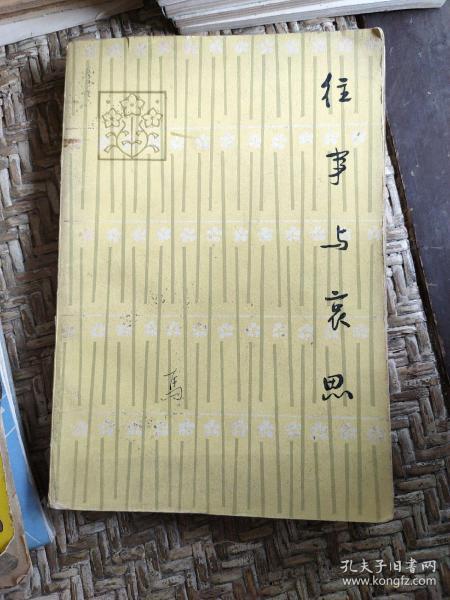 往事与哀思
馬
孔夫子旧书网
www.kongfz.com